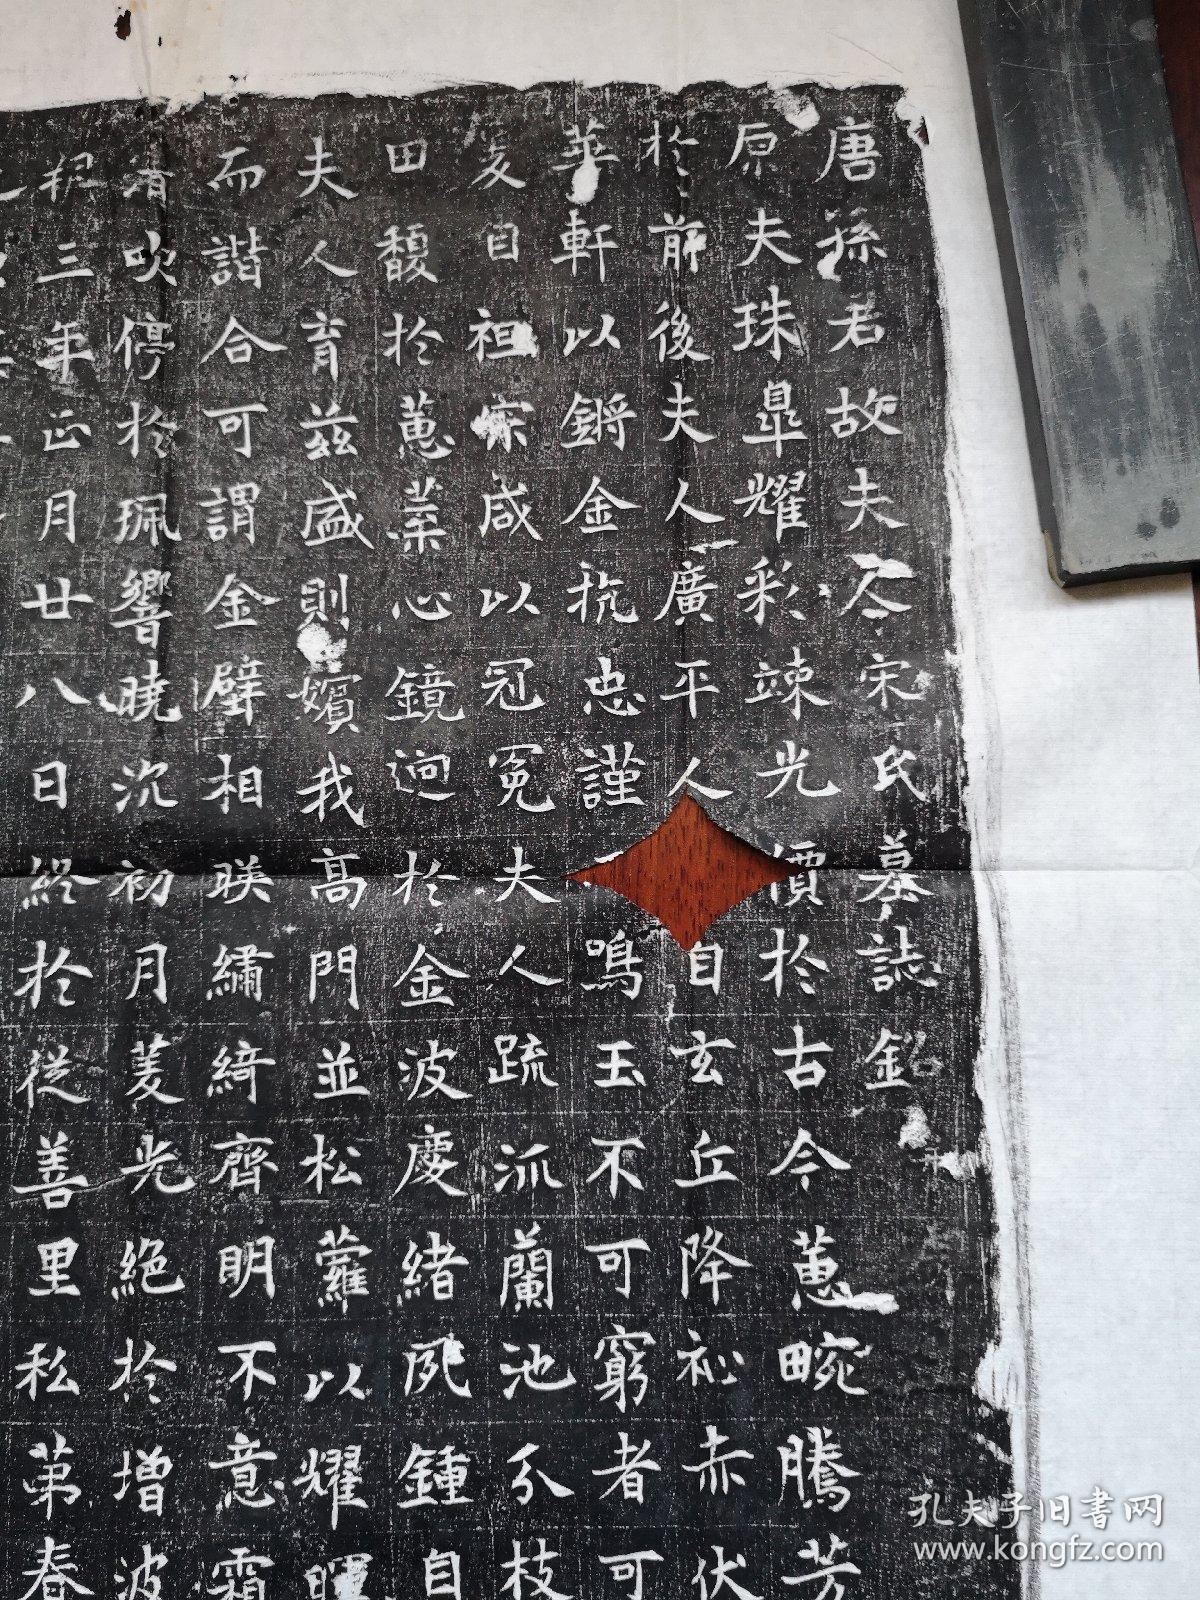 唐孫君故夫人宋氏墓誌銘
原夫珠皐耀彩竦光價於古今蕙畹騰芳
於前後夫人廣平人自玄丘降祉赤伏
華軒以鏘金抗忠謹鳴玉不可窮者可
爰自祖宗咸以冠冕夫人疏派蘭池分枝
田馥於蕙葉心鏡逈於金波慶緒夙鍾自
夫人育茲盛則嬪我高門並松蘿以耀暉
而諧合可謂金璧相暎繡綺齊明不意霜
清吹停於珮響曉沉初月菱光絕於增波
拱三年正月廿八日終於從善里私第春
孔夫子旧书网
www.kongfz.com